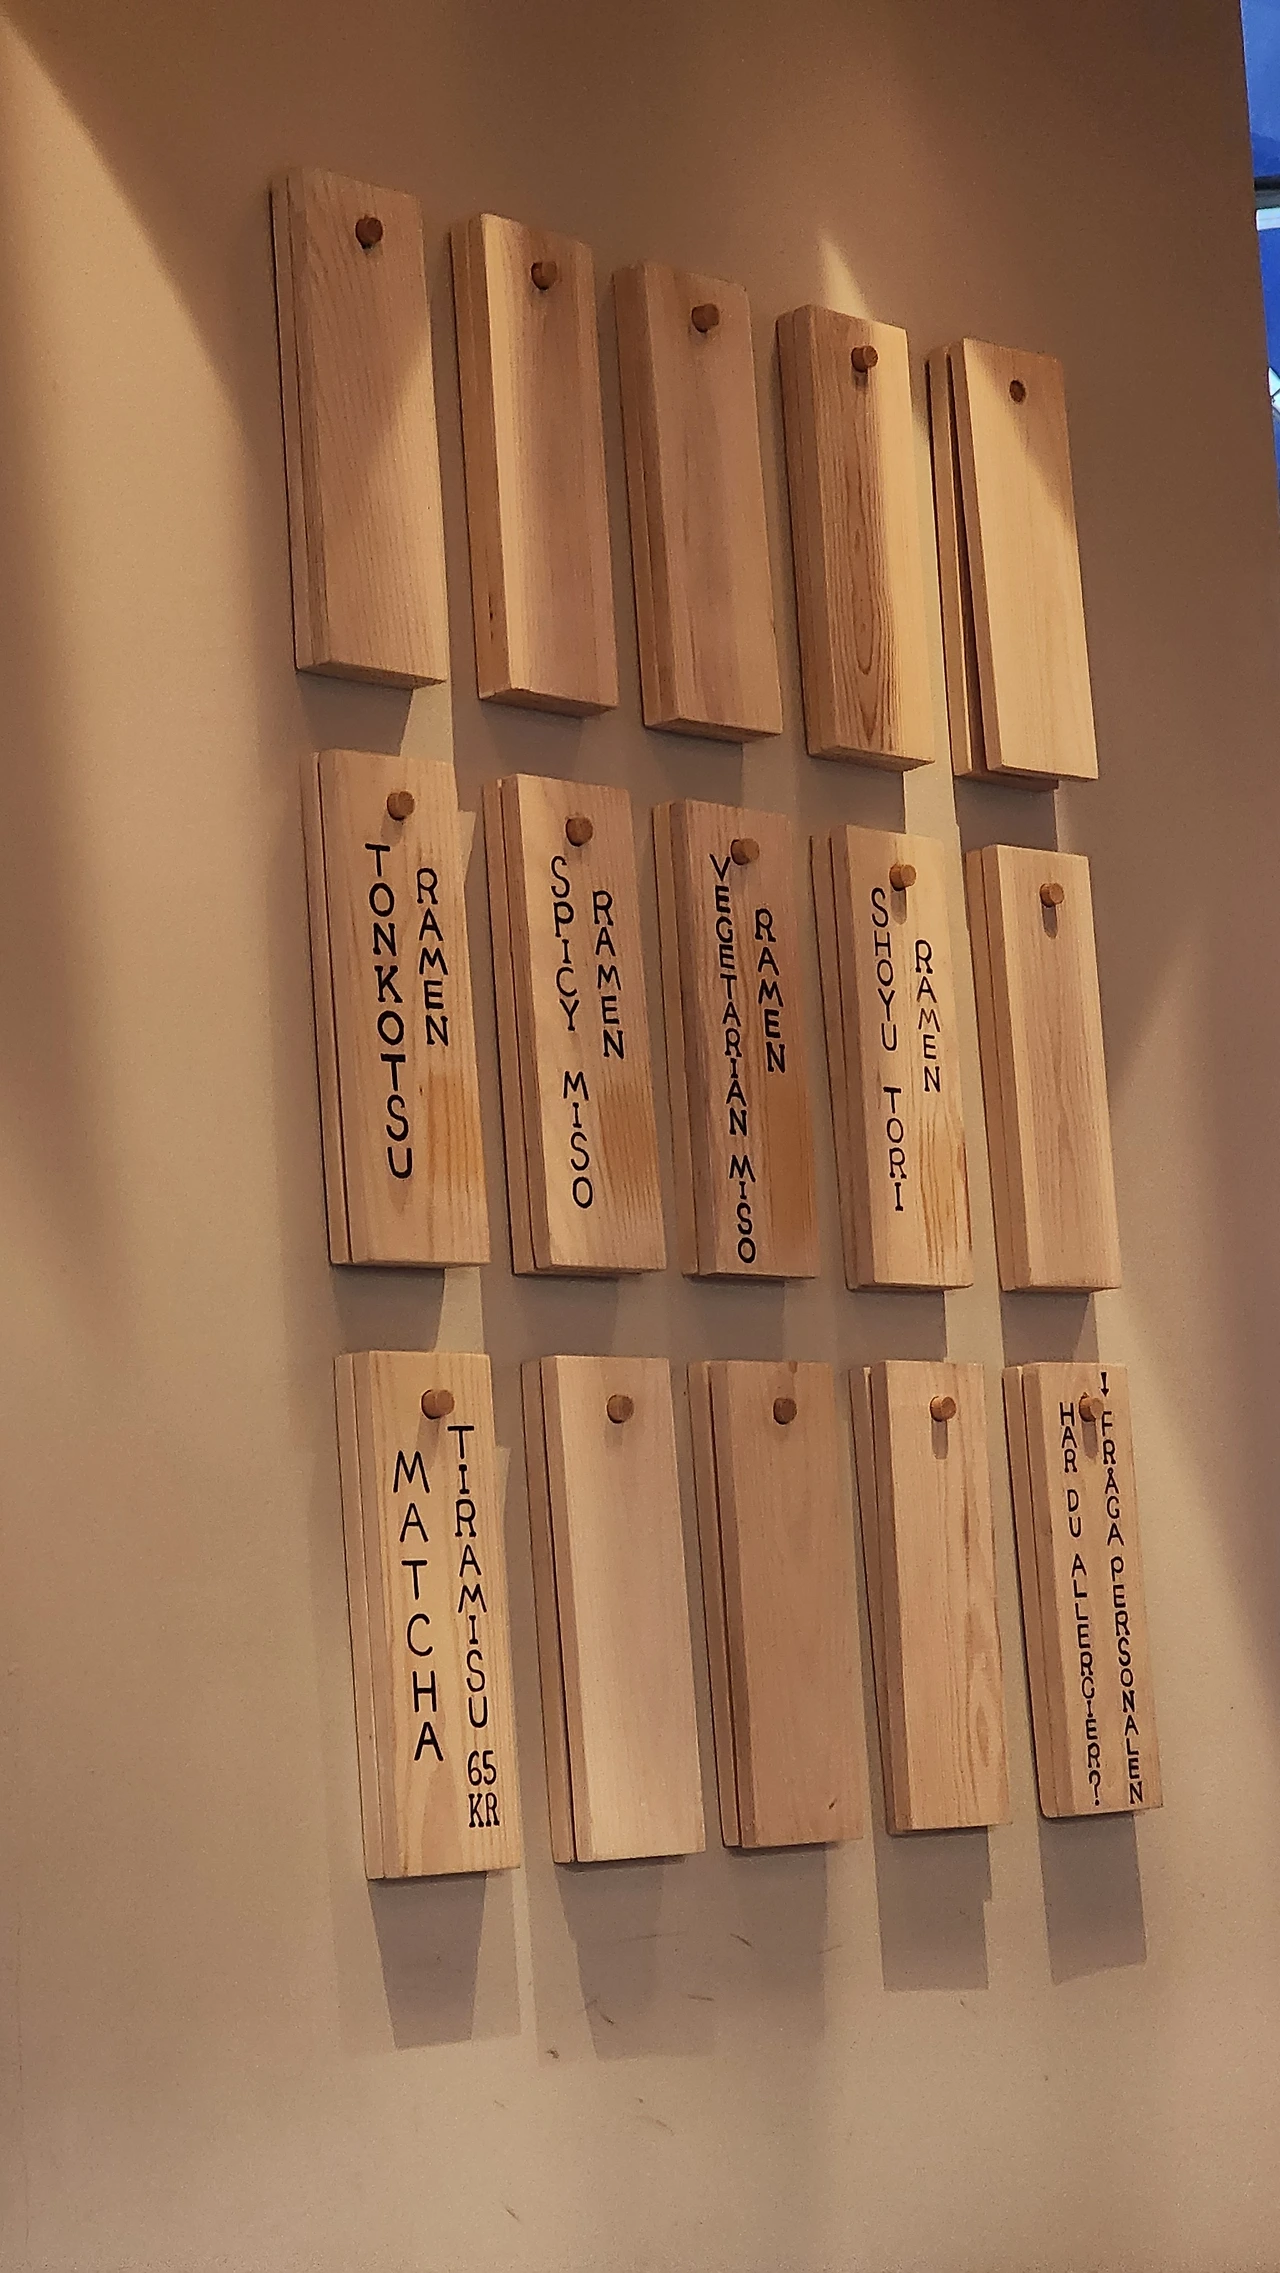 TONKOTSU
RAMEN
SPICY MISO
RAMEN
VEGETARIAN MISO
RAMEN
SHOYU TORI
RAMEN
MATCHA
TIRAMISU 65
KR
HAR DU ALLERGIER?
FRÅGA PERSONALEN